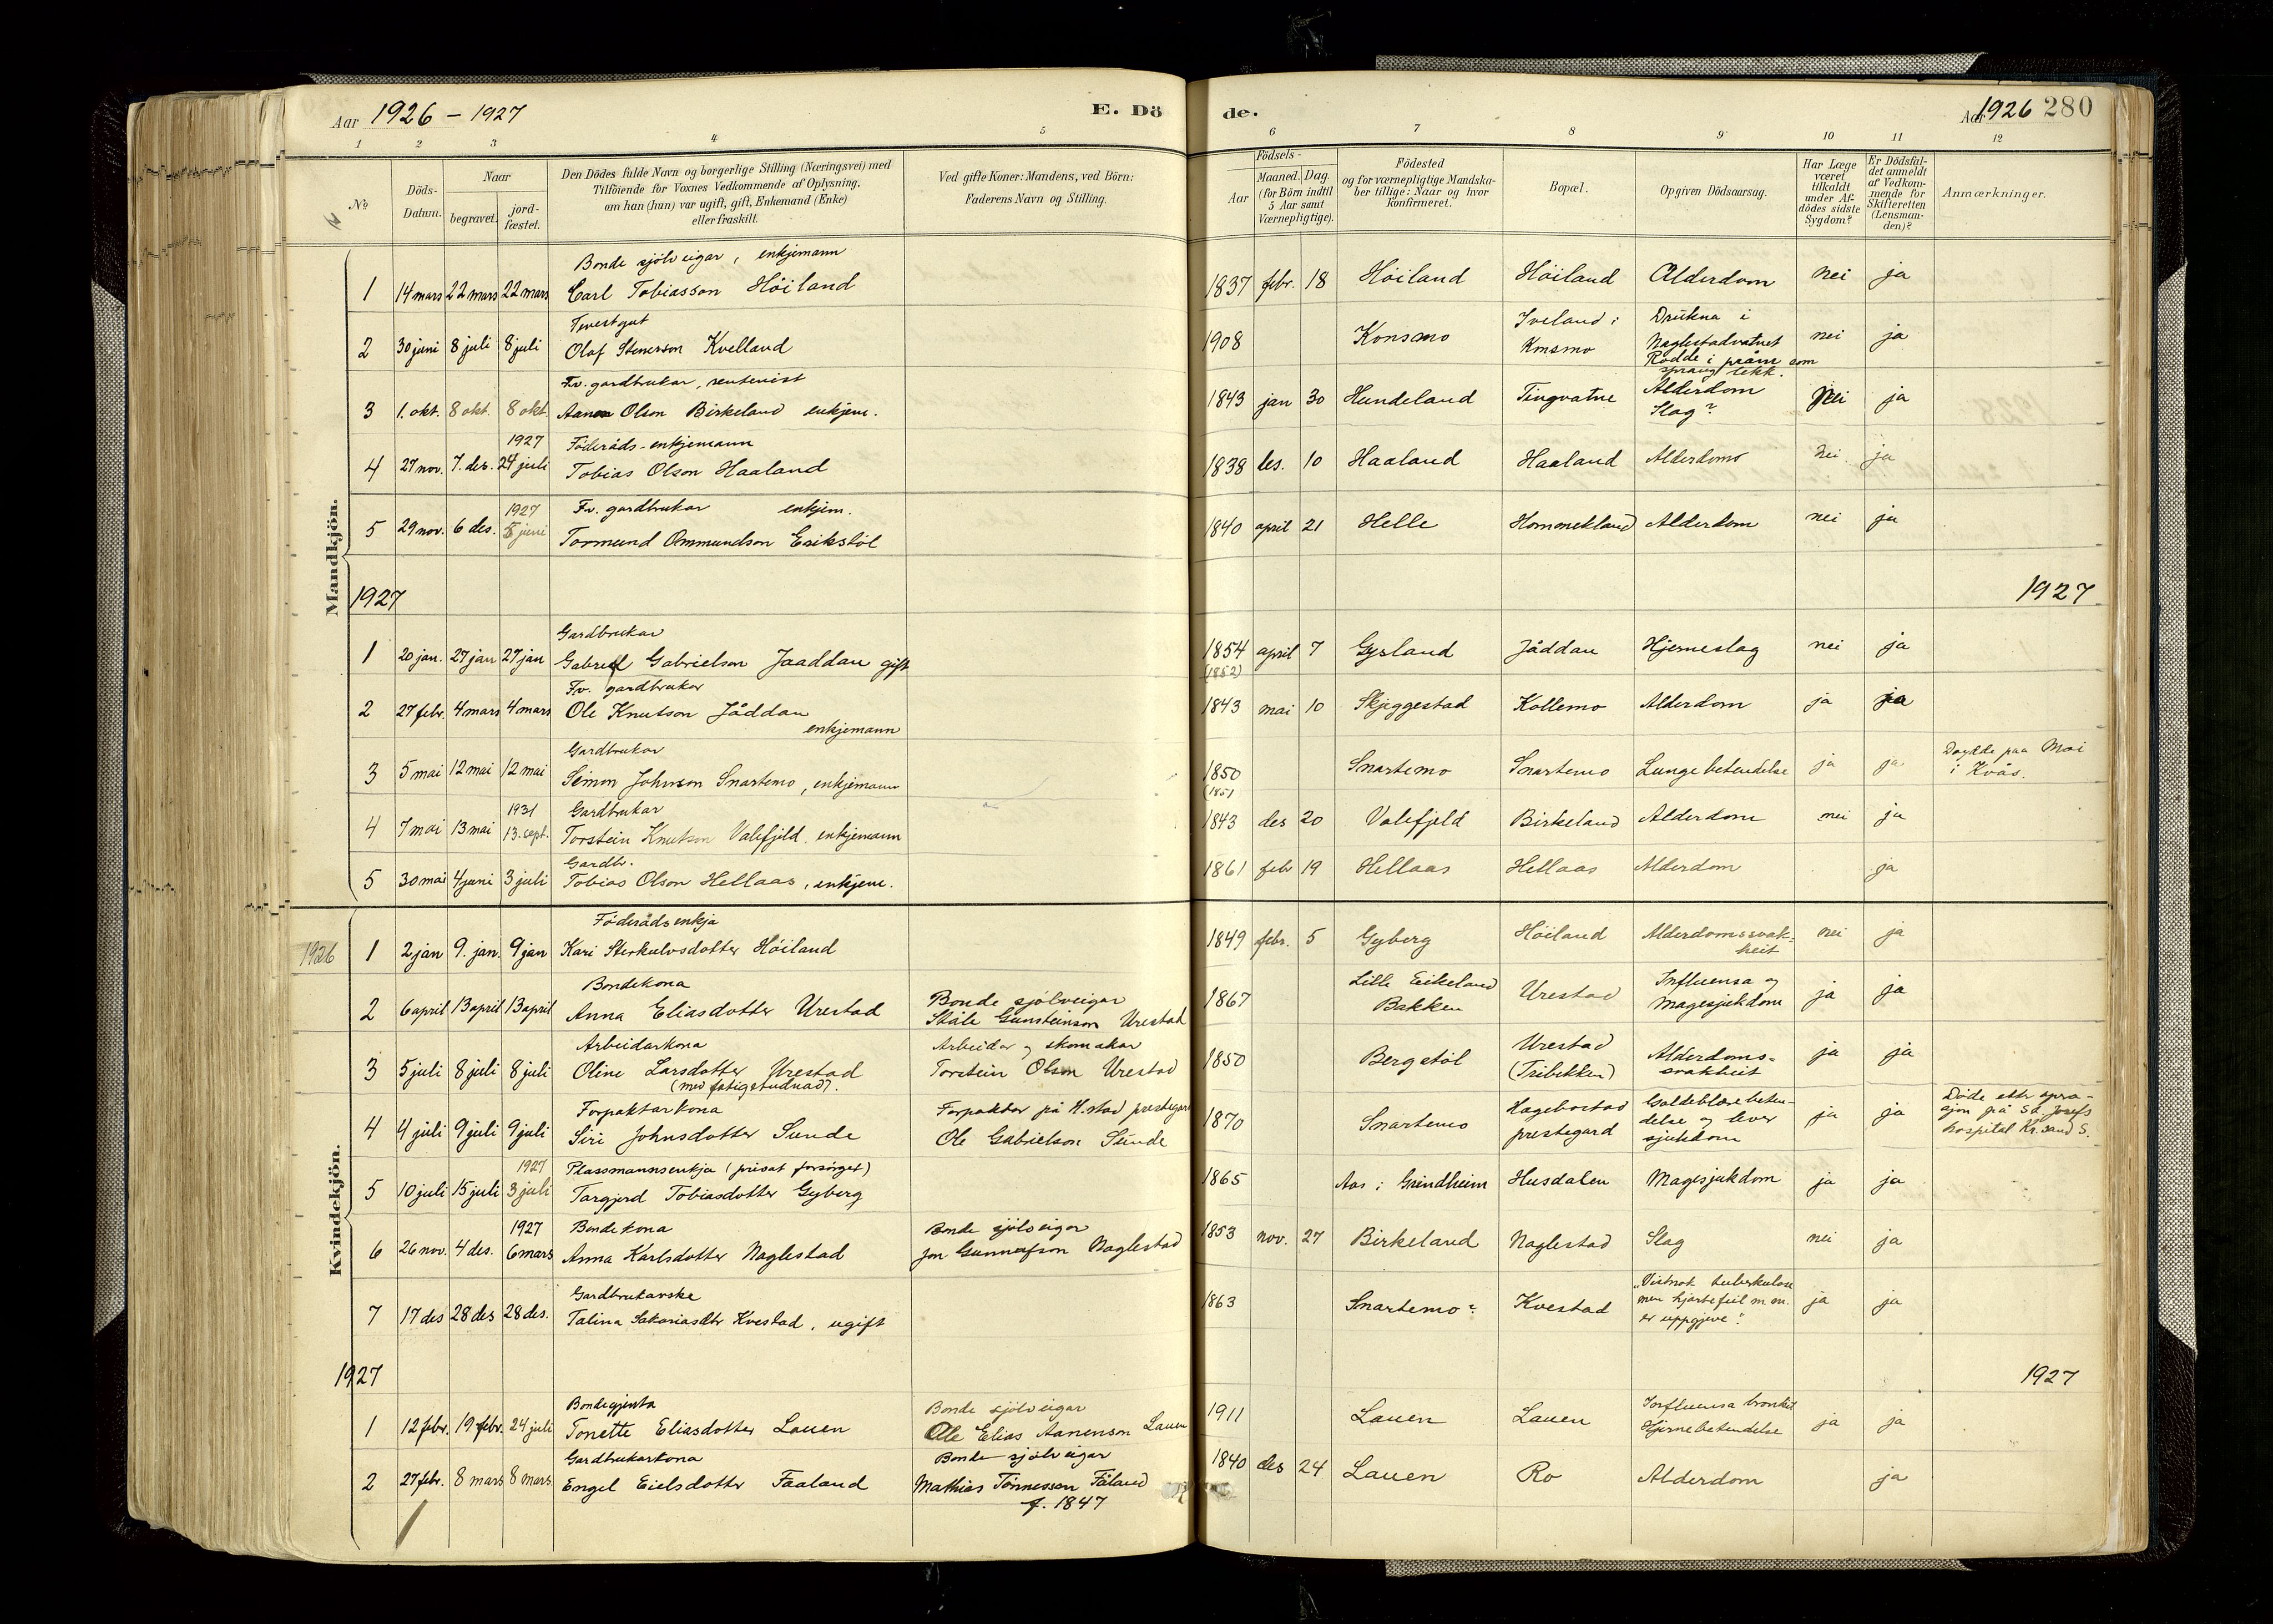 Aar 1926 - 1927
E. Dö
de.
Aar 1926 280
1 2 3 4 5 6 7 8 9 10 11 12
No
Döds-Datum.
Naar
begravet.
jord-fæstet.
Den Dödes fulde Navn og borgerlige Stilling (Næringsvei) med
Tilföiende for Voxnes Vedkommende af Oplysning,
om han (hun) var ugift, gift, Enkemand (Enke)
eller fraskilt.
Ved gifte Koner: Mandens, ved Börn:
Faderens Navn og Stilling.
Födsels-
Aar
Maaned. Dag.
(for Börn indtil
5 Aar samt
Værnepligtige).
Födested
og for værnepligtige Mandska-
ber tillige: Naar og hvor
konfirmeret.
Bopæl.
Opgiven Dödsaarsag.
Har Læge
været
tilkaldt
under Af-
dödes sidste
Sygdom?
Er Dödsfal-
det anmeldt
af Vedkom-
mende for
Skifteretten
(Lensman-
den)?
Anmærkninger.
Mandkjön.
Bonde sjölveigar, enkjemann
1 14 mars 22 mars 22 mars Carl Tobiasson Höiland 1837 febr. 18 Höiland Höiland Alderdom nei ja
Olaf Stenerson Kvelland
2 30 juni 8 juli 8 juli 1908 Konsmo Iveland i Konsmo Drukna i Naglestadvatnet Rodde i pråm som sprang lekk. nei ja
Fv. gardbrukar, rentenist
3 1. okt. 8 okt. 8 okt. Aanen Olson Birkeland enkjem. 1843 jan 30 Hundeland Tingvatne Alderdom Slag? Nei ja
1927 Föderåds-enkjemann
4 27 nov. 7. des. 24 juli Tobias Olson Haaland 1838 des. 10 Haaland Haaland Alderdom nei ja
1927 Fv. gardbrukar enkjem.
5 29 nov. 6 des. 5 juni Tormund Ommundson Eikstöl 1840 april 21 Helle Hommekland Alderdom nei ja
1927 1927
Gardbrukar
1 20 jan. 27 jan 27 jan Gabriel Gabrielson Jaaddan gift 1854 (1852) april 7 Gysland Jåddan Hjerneslag nei ja
Fv. gardbrukar
2 27 febr. 4 mars 4 mars Ole Knutson Jåddan enkjemann 1843 mai 10 Skjeggestad Kollemo Alderdom ja ja
Gardbrukar
3 5 mai 12 mai 12 mai Simon Johnson Snartemo, enkjemann 1850 (1851 Snartemo Snartemo Lungebetendelse ja ja Döydde paa Moi i Kvås.
1931 Gardbrukar
4 7 mai 13 mai 13. sept. Torstein Knutson Valefjeld, enkjemann 1843 des 20 Valefjeld Birkeland Alderdom nei ja
Gardbr.
5 30 mai 4 juni 3 juli Tobias Olson Hellaas, enkjem. 1861 febr 19 Hellaas Hellaas Alderdom ja
Kvindekjön.
1926
Föderådsenkja
1 2 jan 9. jan. 9 jan Kari Sterkulvsdotter Höiland 1849 febr. 5 Gyberg Höiland Alderdomssvak-heit nei ja
Bondekona
2 6 april 13 april 13 april Anna Eliasdotter Urestad Bonde sjölveigar Ståle Gunsteinson Urestad 1867 Lille Eikeland Bakken Urestad Influensa og magesjukdom ja ja
Arbeidarkona
3 5 juli 8 juli 8 juli Oline Larsdotter Urestad (med fatigstudnad). Arbeidar og skomakar Torstein Olson Urestad 1850 Bergstöl Urestad (Tribekken) Alderdoms-svakheit ja ja
Forpaktarkona
4 4 juli 9 juli 9 juli Siri Johnsdotter Sunde Forpaktar på H.stad prestegard Ole Gabrielson Sunde 1870 Snartemo Hægebostad prestegard Galdeblærebeten-delse og lever sjukdom ja ja Döde etter opra-sjon på St. Josefs hospital Kr.sand S.
1927 Plassmannsenkja (privat forsörget)
5 10 juli 15 juli 3 juli Targjerd Tobiasdotter Gyberg 1865 Aas i Grindheim Husdalen Magesjukdom ja ja
1927 Bondekona
6 26 nov. 4 des. 6 mars Anna Karlsdotter Naglestad Bonde sjölveigar Jon Gunnarson Naglestad 1853 nov. 27 Birkeland Naglestad Slag nei ja
Gardbrukarske
7 17 des 28 des 28 des. Talina Sakariasdtr Kvestad, ugift 1863 Snartemo? Kvestad "Vistnok tuberkulose men hjartefeil m.m. er uppgjeve". ja ja
1927 1927
Bondegjenta
1 12 febr. 19 febr. 24 juli Tonette Eliasdotter Lauen Bonde sjölveigar Ole Elias Aanenson Lauen 1911 Lauen Lauen Influensa bronkit Hjernebetendelse ja ja
Gardbrukarkona
2 27 febr. 8 mars 8 mars Engel Eielsdotter Faaland Bonde sjölveigar Mathias Tönnesson Fåland f. 1847 1840 des 24 Lauen Ro Alderdom ja